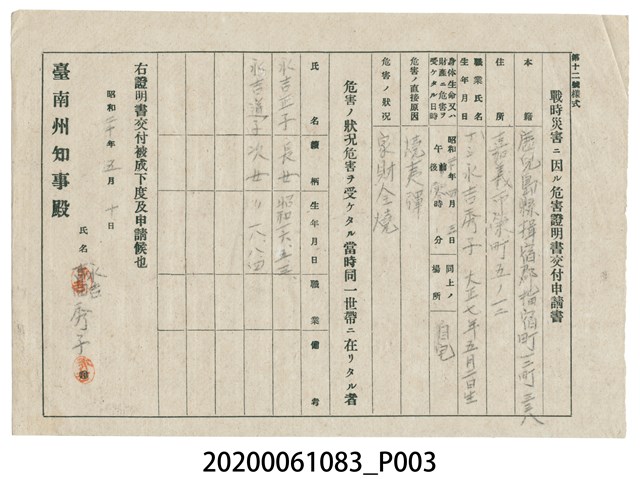 第十二號樣式
戰時災害ニ因ル危害證明書交付申請書
本籍 鹿兒島縣揖宿郡指宿町
住所 嘉義市榮町五ノ一二
職業氏名 生年月日 永吉秀子 大正七年五月二日生
身体生命又ハ財產ニ危害ヲ受ケタル日時 昭和 年四月三日 午前後 時 分 同上ノ場所 自宅
危害ノ直接原因 燒夷彈
危害ノ狀況 家財全燒
危害ノ狀況危害ヲ受ケタル當時同一世帶ニ在リタル者
氏名 續柄 生年月日 職業 備考
永吉 子 長女 昭和
永吉道子 次女
右證明書交付被成下度及申請候也
昭和二十年五月十日
氏名 永吉秀子
臺南州知事殿
20200061083_P003